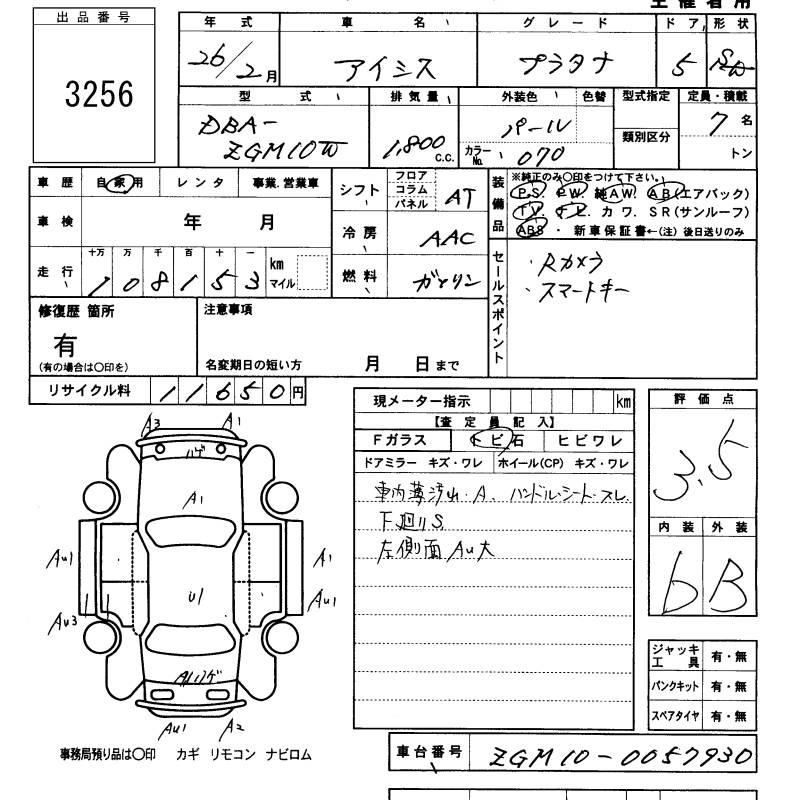 主催者用
出品番号
3256
年式 車名 グレード ドア 形状
26/2月 アイシス プラタナ 5
型式 排気量 外装色 色替 型式指定 定員・積載
DBA-ZGM10W 1,800 c.c. パール 類別区分 7名
カラーNo. 070 トン
車歴 自家用 レンタ 事業.営業車
シフト フロア コラム パネル AT
装備品 ※純正のみ○印をつけて下さい。
P.S. P.W. 純A.W. A.B(エアバック)
T.V. ナビ カワ S.R(サンルーフ)
ABS ・ 新車保証書←(注)後日送りのみ
車検 年 月
冷房 AAC
走行 十万 万 千 百 十 一
108153 km マイル
燃料 ガソリン
セールスポイント
・Rカメラ
・スマートキー
修復歴 箇所
有
(有の場合は○印を)
注意事項
名変期日の短い方 月 日まで
リサイクル料 11650円
現メーター指示 km
【査定員記入】
Fガラス トビ石 ヒビワレ
ドアミラー キズ・ワレ ホイール(CP) キズ・ワレ
車内薄汚れ・A、ハンドル・シート・スレ
下廻りS
左側面 Au大
評価点
3.5
内装 外装
b B
A3 A1
ハゲ
A1
Au1 A1
U1 Au1
Au3
A1ハゲ
Au1 A2
ジャッキ 工具 有・無
パンクキット 有・無
スペアタイヤ 有・無
事務局預り品は○印 カギ リモコン ナビロム
車台番号 ZGM10-0057930